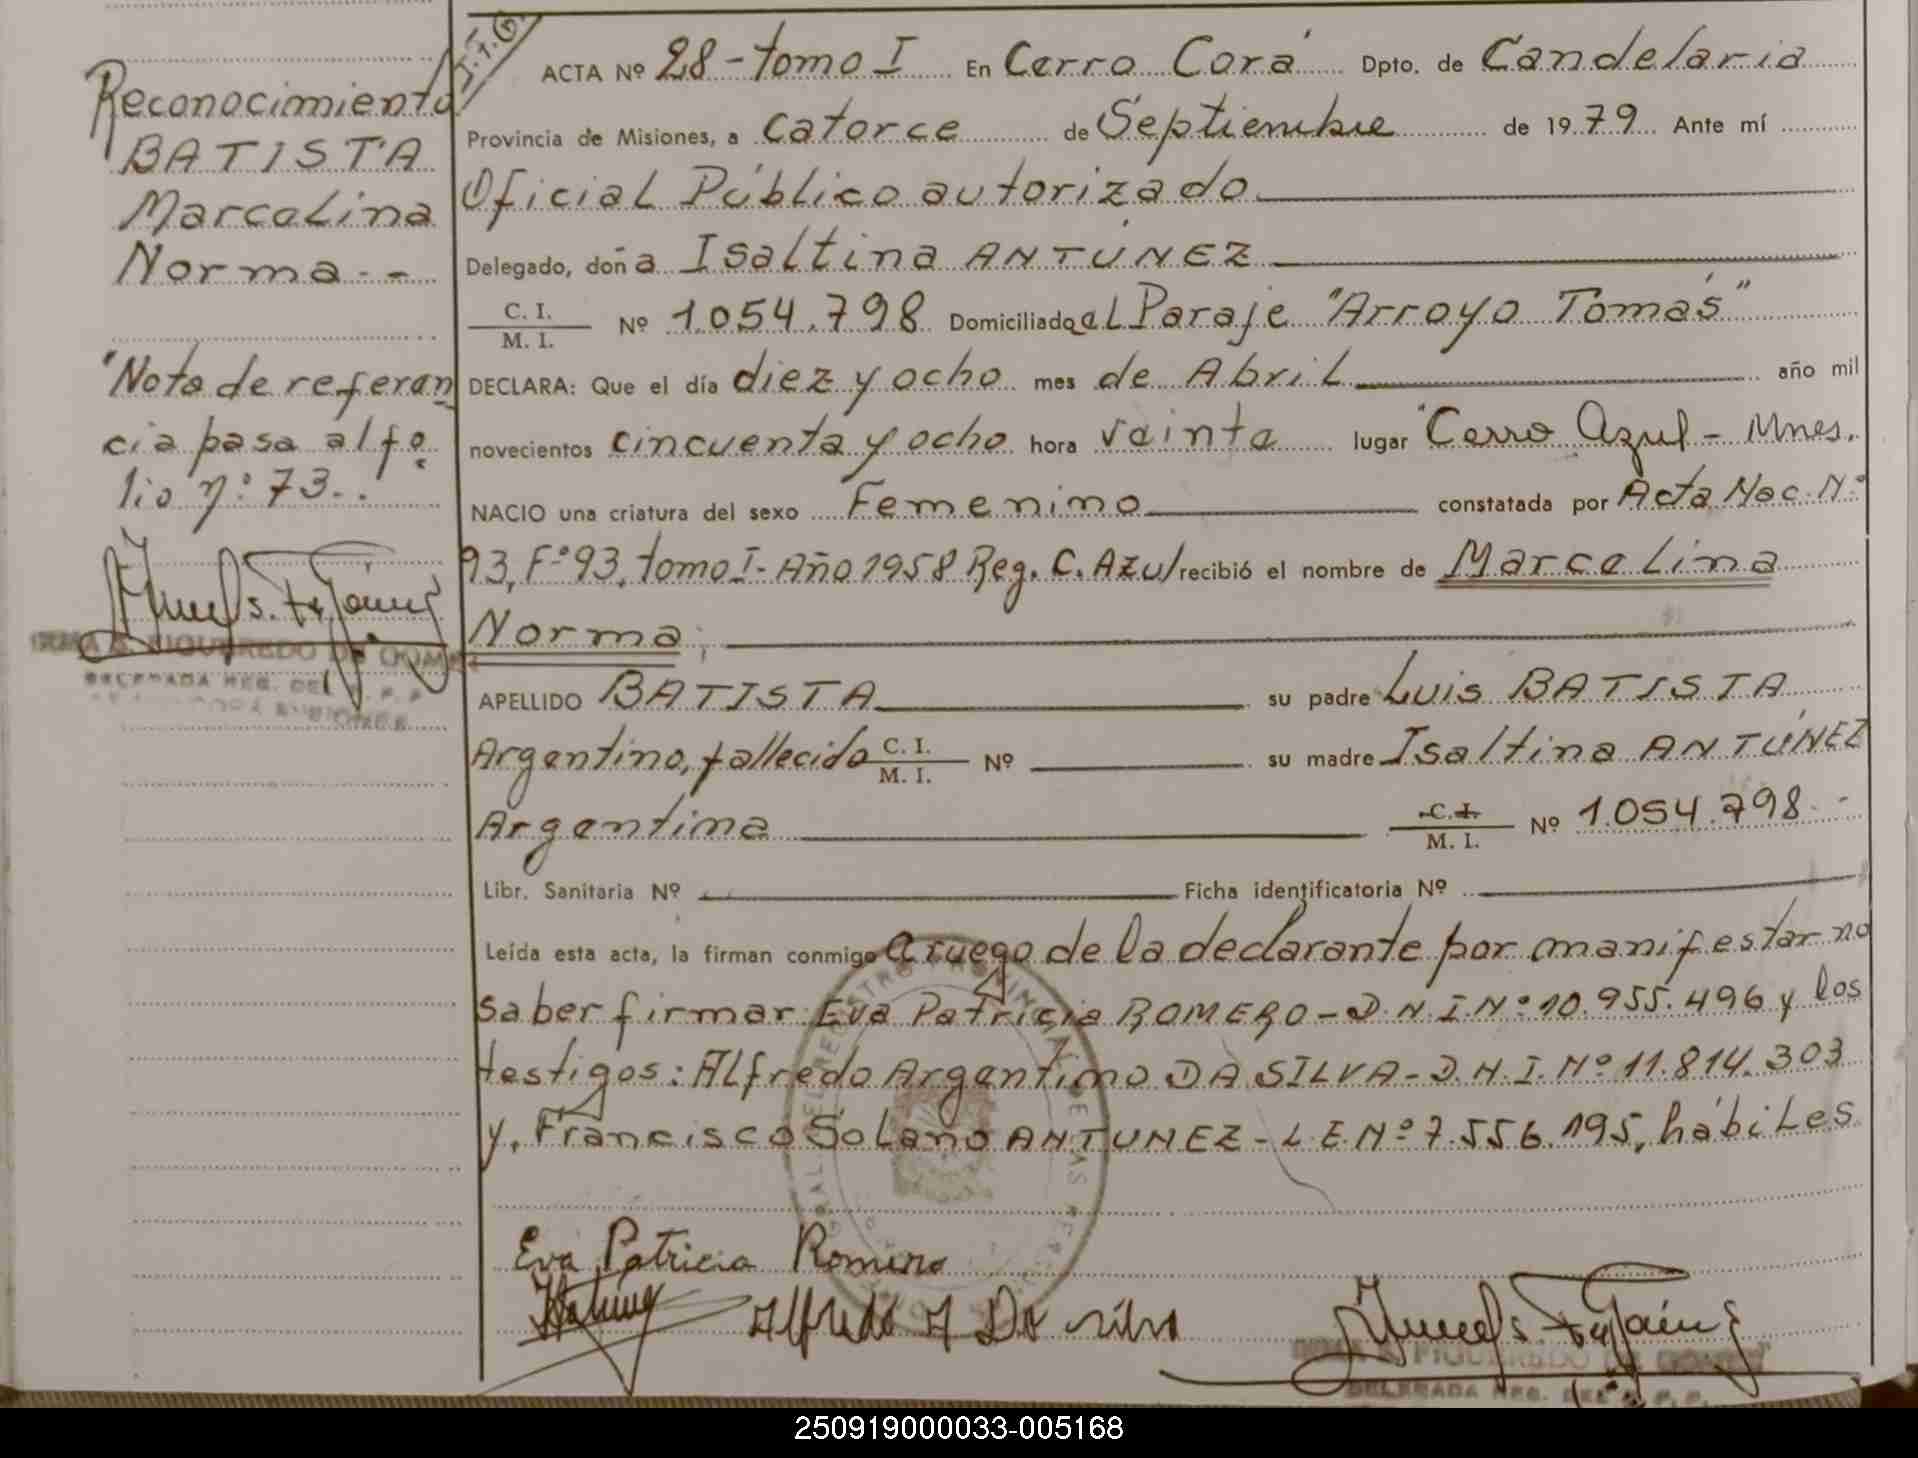 J.T.G.
Reconocimiento
BATISTA
Marcelina
Norma.-
"Nota de referen
cia pasa al fo
lio nº 73..
DELEGADA REG. DEL
ACTA Nº 28-tomo I En Cerro Corá Dpto. de Candelaria
Provincia de Misiones, a catorce de Septiembre de 1979 Ante mí
Oficial Público autorizado
Delegado, doña Isaltina ANTÚNEZ
C. I.
M. I. Nº 1.054.798 Domiciliado al Paraje "Arroyo Tomás"
DECLARA: Que el día diez y ocho mes de Abril año mil
novecientos cincuenta y ocho hora veinte lugar Cerro Azul - Mnes.
NACIO una criatura del sexo Femenino constatada por Acta Nac. Nº
93, Fº 93, tomo I- Año 1958 Reg. C. Azul recibió el nombre de Marcelina
Norma;
APELLIDO BATISTA su padre Luis BATISTA
Argentino, fallecido C. I. M. I. Nº su madre Isaltina ANTÚNEZ
Argentina C. I. M. I. Nº 1.054.798.-
Libr. Sanitaria Nº Ficha identificatoria Nº
Leída esta acta, la firman conmigo a ruego de la declarante por manifestar no
saber firmar Eva Patricia ROMERO - D.N.I.Nº 10.955.496 y los
testigos: Alfredo Argentino DA SILVA - D.N.I. Nº 11.814.303
y, Francisco Solano ANTUNEZ - L.E.Nº 7.556.195, hábiles
Eva Patricia Romero
Alfredo A Da silva
FIGUEREDO DE GOMEZ
DELEGADA REG. DEL
250919000033-005168